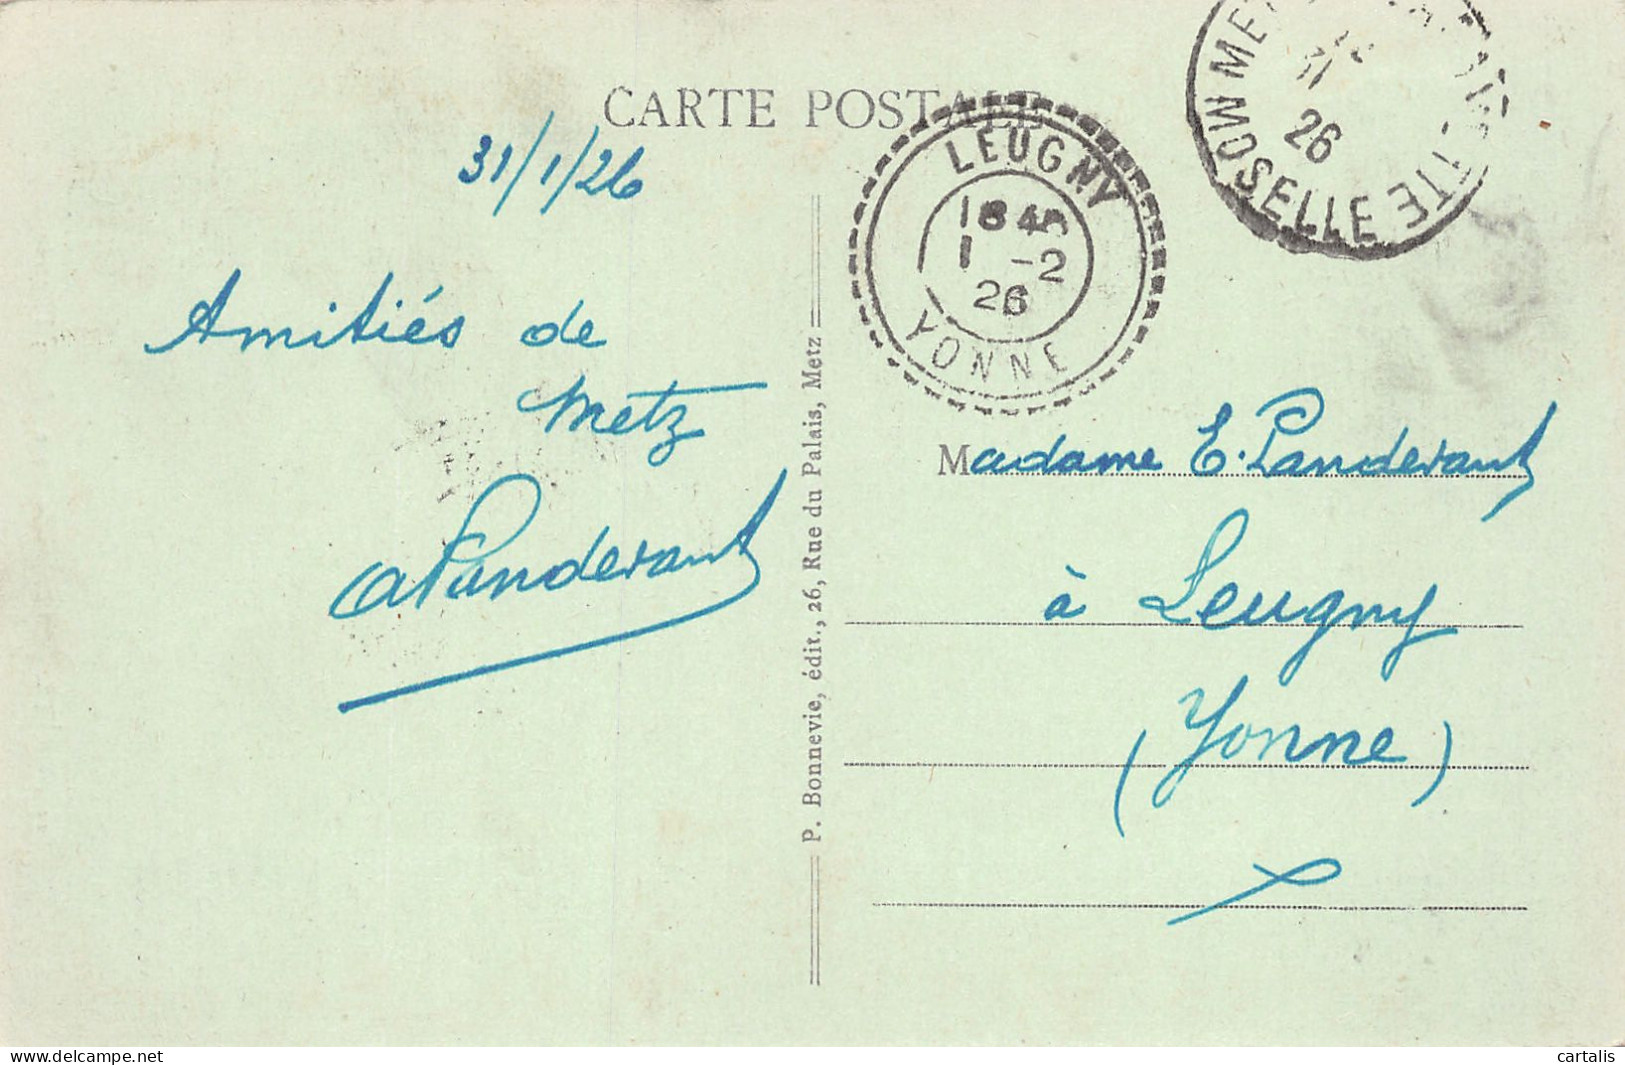 CARTE POSTALE
31/1/26
Amitiés de
Metz
Panderant
P. Bonnevie, édit., 26, Rue du Palais, Metz
LEUGNY
18 45
1 -2
26
YONNE
26
MOSELLE
Madame E. Panderant
à Leugny
(Yonne)
www.delcampe.net
cartalis